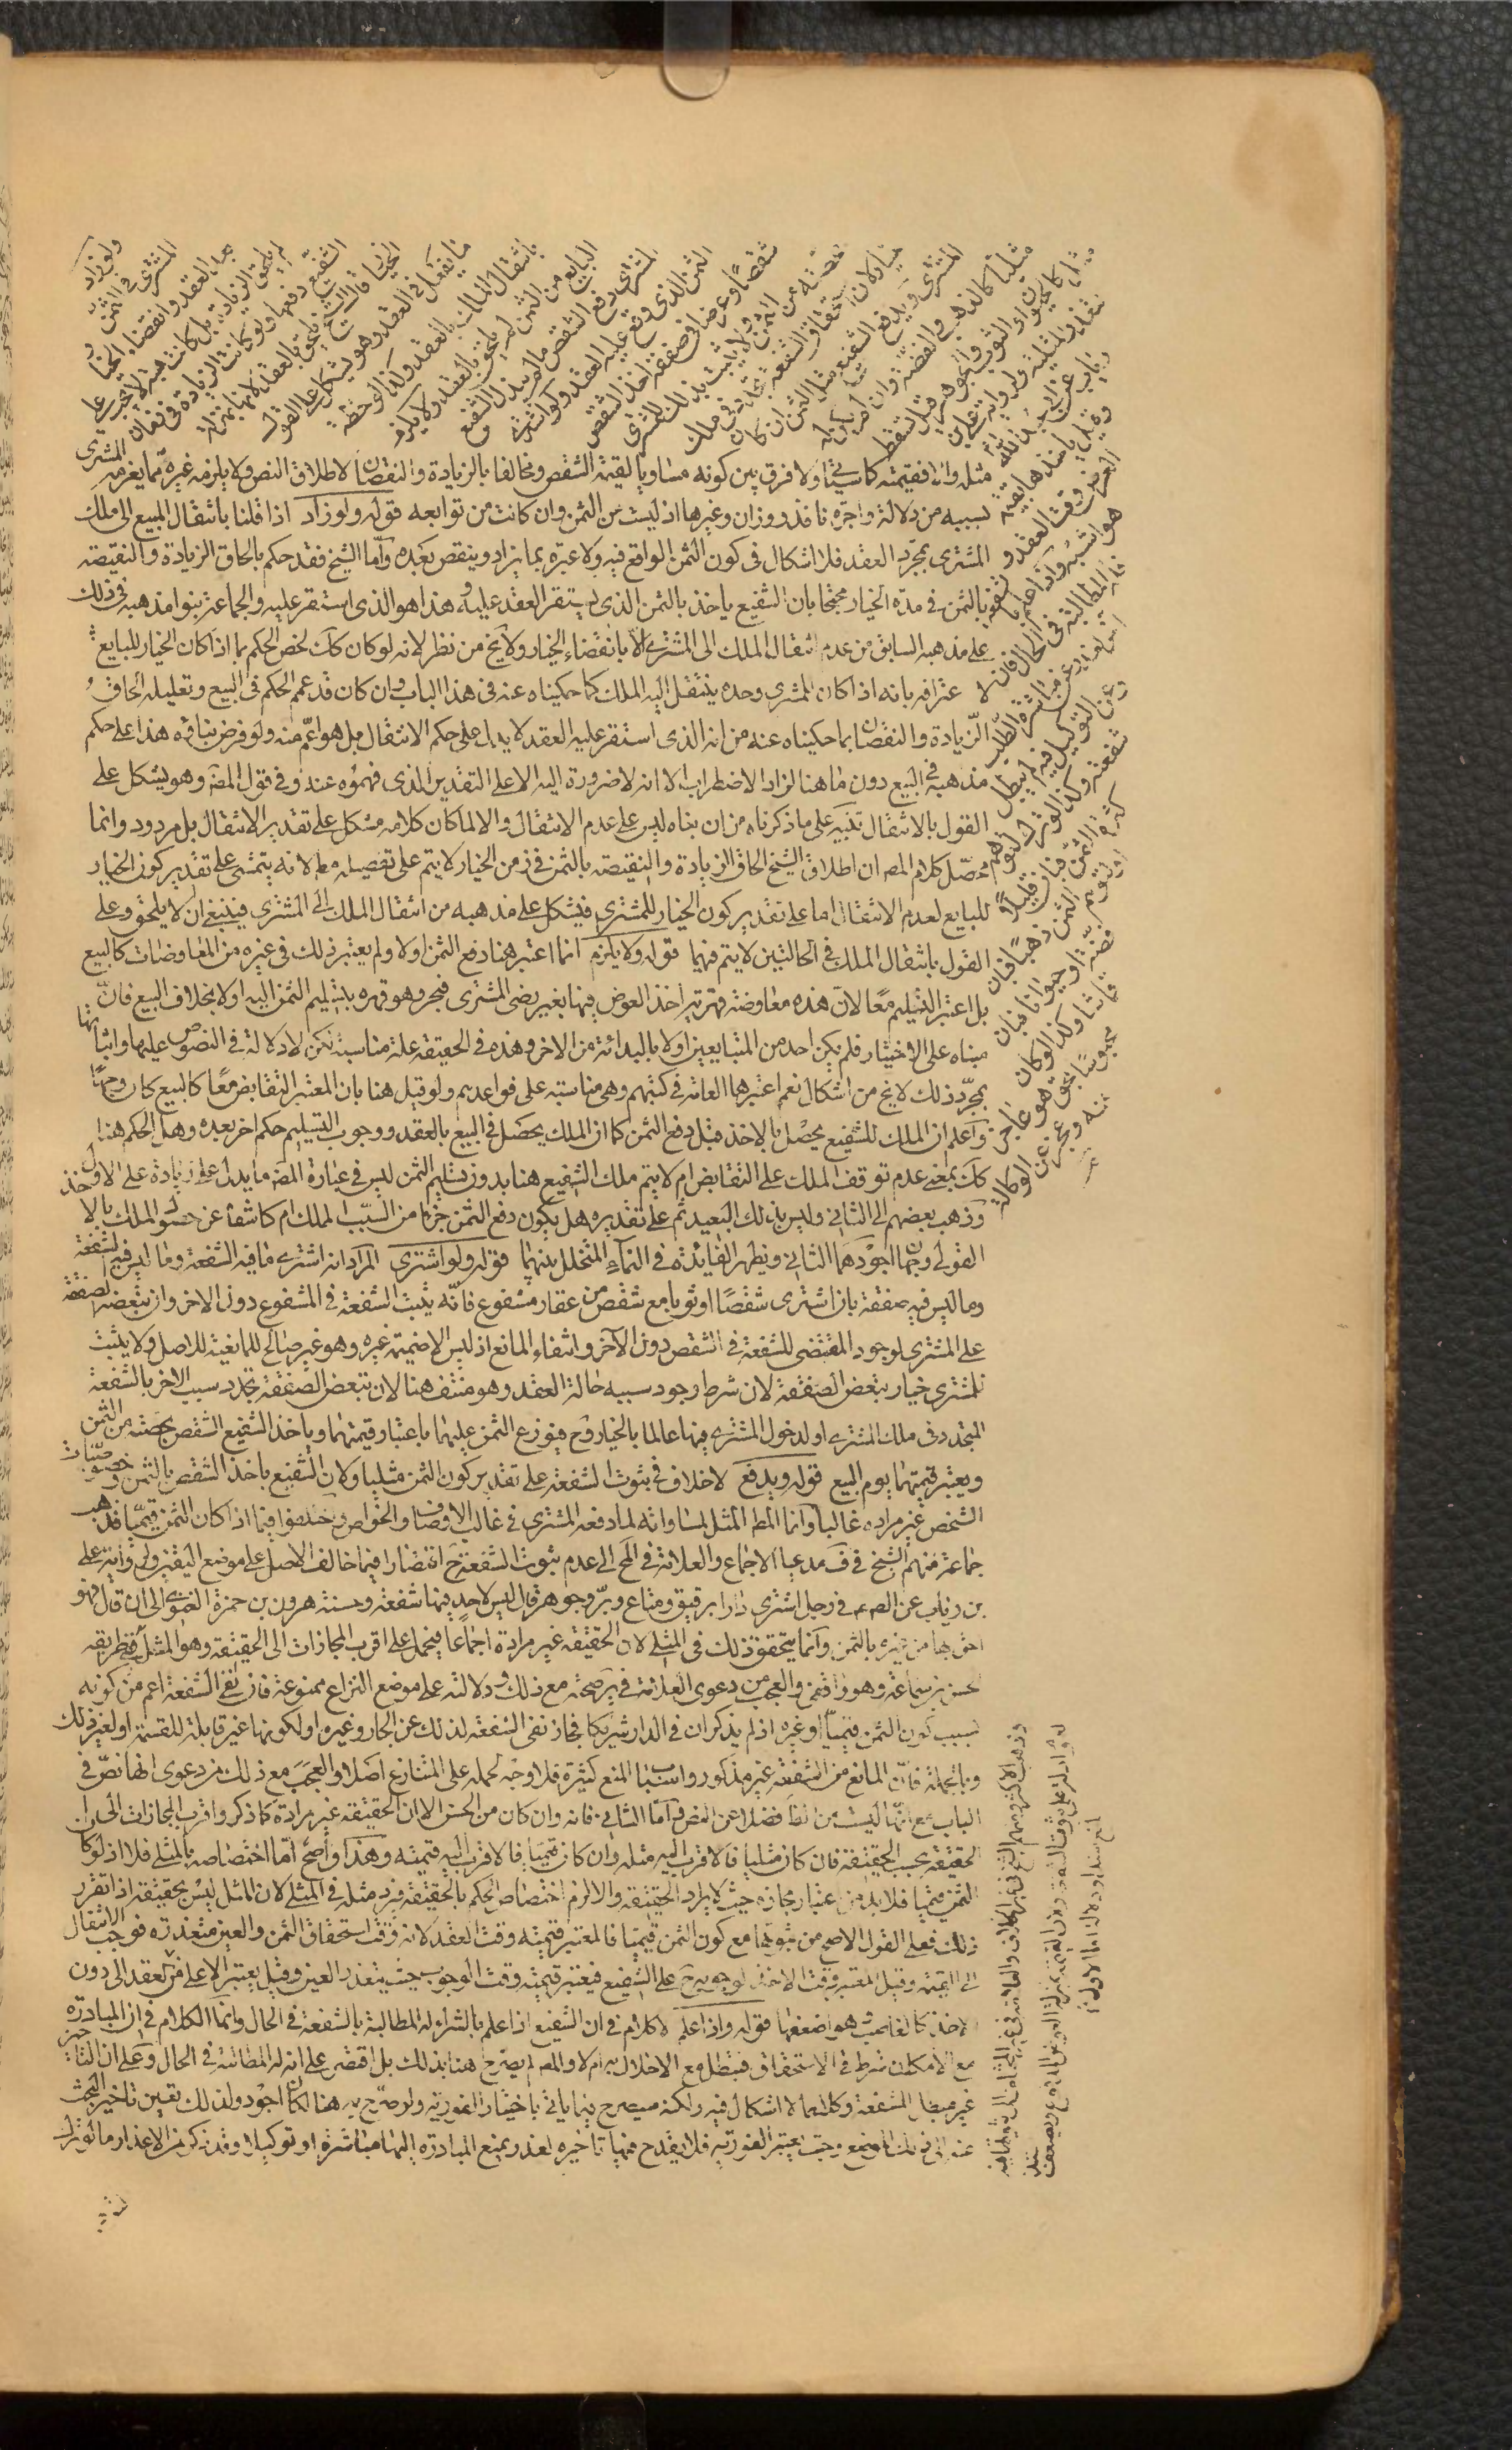 ولو زاد
المشتري في الثمن
بعد العقد وانقضاء الخيار
لم يلحق الزيادة بل كانت هبة لا تجب على
الشفيع دفعها ولو كانت الزيادة في زمان
الخيار قال الشيخ يلحق بالعقد لانها بمنزلة
ما يفعل في العقد وهو يشكل على القول
بانتقال الملك بالعقد وكذا لو حط
البايع من الثمن لم يلحق بالعقد ولا يلزم
المشتري دفع الشقص ما لم يبذل الشفيع
الثمن الذي وقع عليه العقد ولو اشترى
شقصا وعرضا في صفقة اخذ الشقص
بحصته من الثمن ولا يثبت بذلك للمشتري
خيار لان استحقاق الشفعة تجدد في ملك
المشتري ويدفع الشفيع مثل الثمن ان كان
مثليا كالذهب والفضة وان لم يكن له
مثل كالحيوان والثوب والجوهر قيل تسقط
تعذر المثلية ولرواية علي بن
رئاب عن ابي عبد الله
وقيل ياخذها بقيمة
العرض وقت العقد و
هو اشبه واذا علم بالشفعة
فله المطالبة في الحال فان
اخر لعذر عن مباشرة الطلب
وعن التوكيل فيه لم تبطل
شفعته وكذا لو ترك لتوهمه
كثرة الثمن فبان قليلا
او لتوهم الثمن ذهبا فبان
فضة او حيوانا فبان
قماشا وكذا لو كان
محبوسا بحق هو عاجز
عنه وعجز عن الوكالة
مثله والا فقيمته كما سيأتي ولا فرق بين كونه مساويا لقيمة الشقص ومخالفا بالزيادة والنقصان لاطلاق النص ولا يلزمه غيره مما يغرمه المشتري
بسببه من دلالة واجرة ناقد ووزان وغيرها اذ ليست من الثمن وان كانت من توابعه قوله ولو زاد اذا قلنا بانتقال المبيع الى ملك
المشتري بمجرد العقد فلا اشكال في كون الثمن الواقع فيه ولا عبرة بما يزاد وينقص بعده واما الشيخ فقد حكم بالحاق الزيادة والنقيصة
بالثمن في مدة الخيار محتجا بان الشفيع ياخذ بالثمن الذي يستقر العقد عليه وهذا هو الذي استقر عليه والجماعة بنوا مذهبه في ذلك
على مذهبه السابق من عدم انتقال الملك الى المشتري الا بانقضاء الخيار ولا يخ من نظر لانه لو كان كك لخص الحكم بما اذا كان الخيار للبايع
لاعترافه بانه اذا كان للمشتري وحده ينتقل اليه الملك كما حكيناه عنه في هذا الباب وان كان قد عمم الحكم في البيع وتعليله الحاق
الزيادة والنقصان بما حكيناه عنه من انه الذي استقر عليه العقد لا يدل على حكم الانتقال بل هو اعم منه ولو فرض بناؤه هذا على حكم
مذهبه في البيع دون ما هنا لزاد الاضطراب الا انه لا ضرورة اليه الا على التقدير الذي فهموه عنه وفي قول المصة وهو يشكل على
القول بالانتقال تنبيه على ما ذكرناه من ان بناه ليس على عدم الانتقال والا لما كان كلامه مشكل على تقدير الانتقال بل مردود وانما
محصل كلام المص ان اطلاق الشيخ الحاق الزيادة والنقيصة بالثمن في زمن الخيار لا يتم على تفصيله مط لانه يتمشى على تقدير كون الخيار
للبايع لعدم الانتقال اما على تقدير كون الخيار للمشتري فيشكل على مذهبه من انتقال الملك الى المشتري فينبغي ان لا يلحق وعلى
القول بانتقال الملك في الحالتين لا يتم فيهما قوله ولا يلزم انما اعتبر هنا دفع الثمن اولا ولم يعتبر ذلك في غيره من المعاوضات كالبيع
بل اعتبر التسليم معا لان هذه معاوضة قهرية اخذ العوض فيها بغير رضى المشتري فجبر وهو قهره بتسليم الثمن اليه اولا بخلاف البيع فان
مبناه على الاختيار فلم يكن احد من المتبايعين اولى بالبدائة من الاخر وهذه في الحقيقة علة مناسبة لكن لا دلالة في النصوص عليها واثباتها
بمجرد ذلك لا يخ من اشكال نعم اعتبرها العامة في كتبهم وهي مناسبة على قواعدهم ولو قيل هنا بان المعتبر التقابض معا كالبيع كان وجها
واعلم ان الملك للشفيع يحصل بالاخذ قبل دفع الثمن كما ان الملك يحصل في البيع بالعقد ووجوب التسليم حكم اخر بعده وهل الحكم هنا
كك بمعنى عدم توقف الملك على التقابض ام لا يتم ملك الشفيع هنا بدون تسليم الثمن ليس في عبارة المصة ما يدل على زيادة على الاول
وذهب بعضهم الى الثاني وليس بذلك البعيد ثم على تقديره هل يكون دفع الثمن جزءا من السبب المملك ام كاشفا عن حصول الملك بالاخذ
القولي وجهان اجودهما الثاني ويظهر الفائدة في النماء المتخلل بينهما قوله ولو اشترى المراد انه اشترى ما فيه الشفعة وما ليس فيه الشفعة
وما ليس فيه صفقة بان اشترى شقصا او ثوبا مع شقص من عقار مشفوع فانه يثبت الشفعة في المشفوع دون الاخر وان تبعضت الصفقة
على المشتري لوجود المقتضي للشفعة في الشقص دون الآخر وانتفاء المانع اذ ليس الا ضميمة غيره وهو غير صالح للمانعية للاصل ولا يثبت
للمشتري خيار تبعض الصفقة لان شرط وجود سببه حالة العقد وهو منتف هنا لان تبعض الصفقة تجدد بسبب الاخر بالشفعة
المتجدد في ملك المشتري او لدخول المشتري فيها عالما بالخيار وح فيوزع الثمن عليهما باعتبار قيمتهما وياخذ الشفيع الشقص بحصته من الثمن
ويعتبر قيمتهما يوم البيع قوله ويدفع لا خلاف في ثبوت الشفعة على تقدير كون الثمن مثليا ولان الشفيع ياخذ الشقص بالثمن وخصوصيات
الشخص غير مرادة غالبا وانما المط المثل لمساواته لما دفعه المشتري في غالب الاوصاف والخواص واختلفوا فيما اذا كان الثمن قيميا فذهب
جماعة منهم الشيخ في ف مدعيا الاجماع والعلامة في المخ الى عدم ثبوت الشفعة ح اقتصارا فيما خالف الاصل على موضع اليقين ولرواية علي
بن رئاب عن الص ع في رجل اشترى دارا برقيق ومتاع وبز وجوهر قال ليس لاحد فيها شفعة وحسنة هرون بن حمزة الغنوي الى ان قال فهو
احق بها من غيره بالثمن وانما يتحقق ذلك في المثلي لان الحقيقة غير مرادة اجماعا فيحمل على اقرب المجازات الى الحقيقة وهو المثل وفي طريقه
الحسن بن سماعة وهو واقفي والعجب من دعوى العلامة في ير صحته مع ذلك ودلالته على موضع النزاع ممنوعة فان نفي الشفعة اعم من كونه
بسبب كون الثمن قيميا او غيره اذ لم يذكر ان في الدار شريكا فجاز نفي الشفعة لذلك عن الجار وغيره او لكونها غير قابلة للقسمة او لغير ذلك
وبالجملة فان المانع من الشفعة غير مذكور واسباب المنع كثيرة فلا وجه لحمله على المتنازع اصلا والعجب مع ذلك من دعوى انها نص في
الباب مع انها ليست من الظاهر فضلا عن النص واما الثاني فانه وان كان من الحسن الا ان الحقيقة غير مرادة كما ذكر واقرب المجازات الى
الحقيقة بحسب الحقيقة فان كان مثليا فالاقرب اليه مثله وان كان قيميا فالاقرب اليه قيمته وهذا واضح اما اختصاصه بالمثلي فلا اذ لو كان
الثمن قيميا فلا بد من اعتبار مجازه حيث لا يراد الحقيقة والا لزم اختصاص الحكم بالحقيقة فيرد مثله في المثلي لان المثل ليس بحقيقة اذا تقرر
ذلك فعلى القول الاصح من ثبوتها مع كون الثمن قيميا فالمعتبر قيمته وقت العقد لانه وقت استحقاق الثمن والعين متعذرة فوجب الانتقال
الى القيمة وقيل المعتبر وقت الاخذ لوجوبه ح على الشفيع فيعتبر قيمته وقت الوجوب حيث يتعذر العين وقيل يعتبر الاعلى من العقد الى دون
الاخذ كالغاصب هو اضعفها قوله واذا علم لا كلام في ان الشفيع اذا علم بالشراء له المطالبة بالشفعة في الحال وانما الكلام في ان المبادرة
مع الامكان شرط في الاستحقاق فتبطل مع الاخلال به ام لا والمص لم يصرح هنا بذلك بل اقتصر على ان له المطالبة في الحال وعلى ان التاخير
غير مبطل للشفعة وكلاهما لا اشكال فيه ولكنه سيصرح فيما ياتي باختيار الفورية ولو صرح به هنا لكان اجود ولذلك تعين تاخير البحث
عنه الى ذلك الموضع وحيث يعتبر الفورية فلا يقدح فيها تاخيره لعذر يمنع المبادرة اليها مباشرة او توكيلا وقد ذكر من الاعذار ما لو ترك